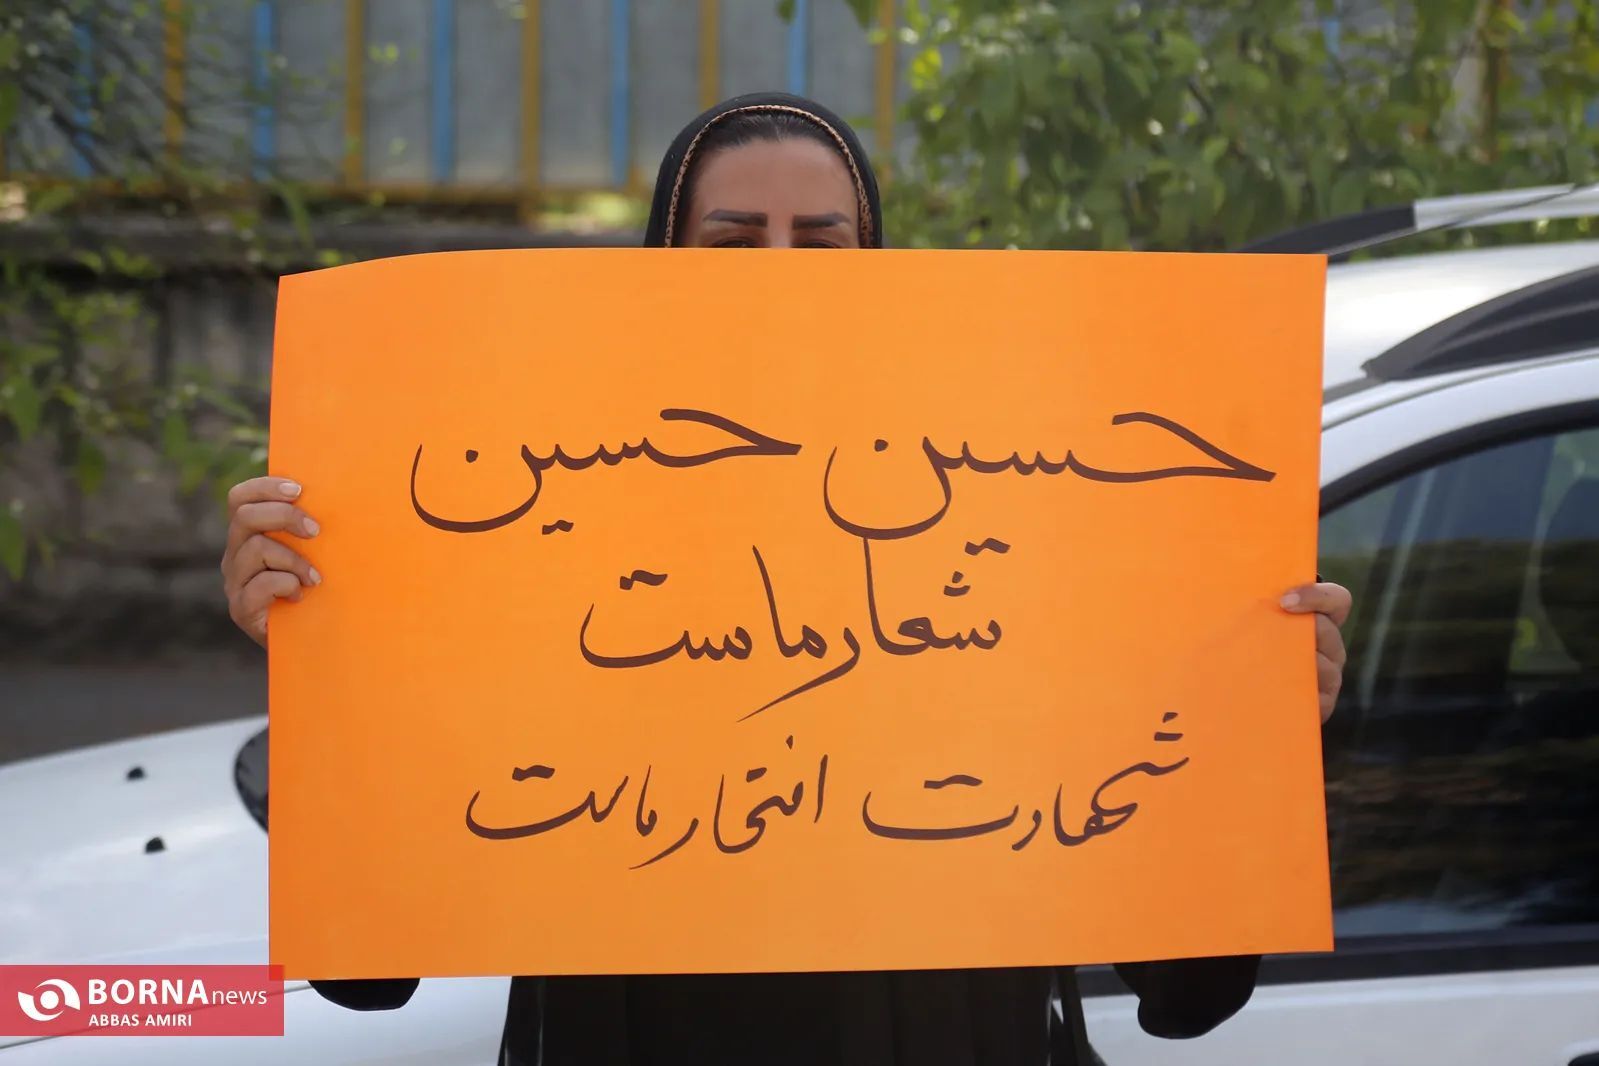 حسین حسین
شعار ماست
شهادت افتخار ماست
BORNA news
ABBAS AMIRI